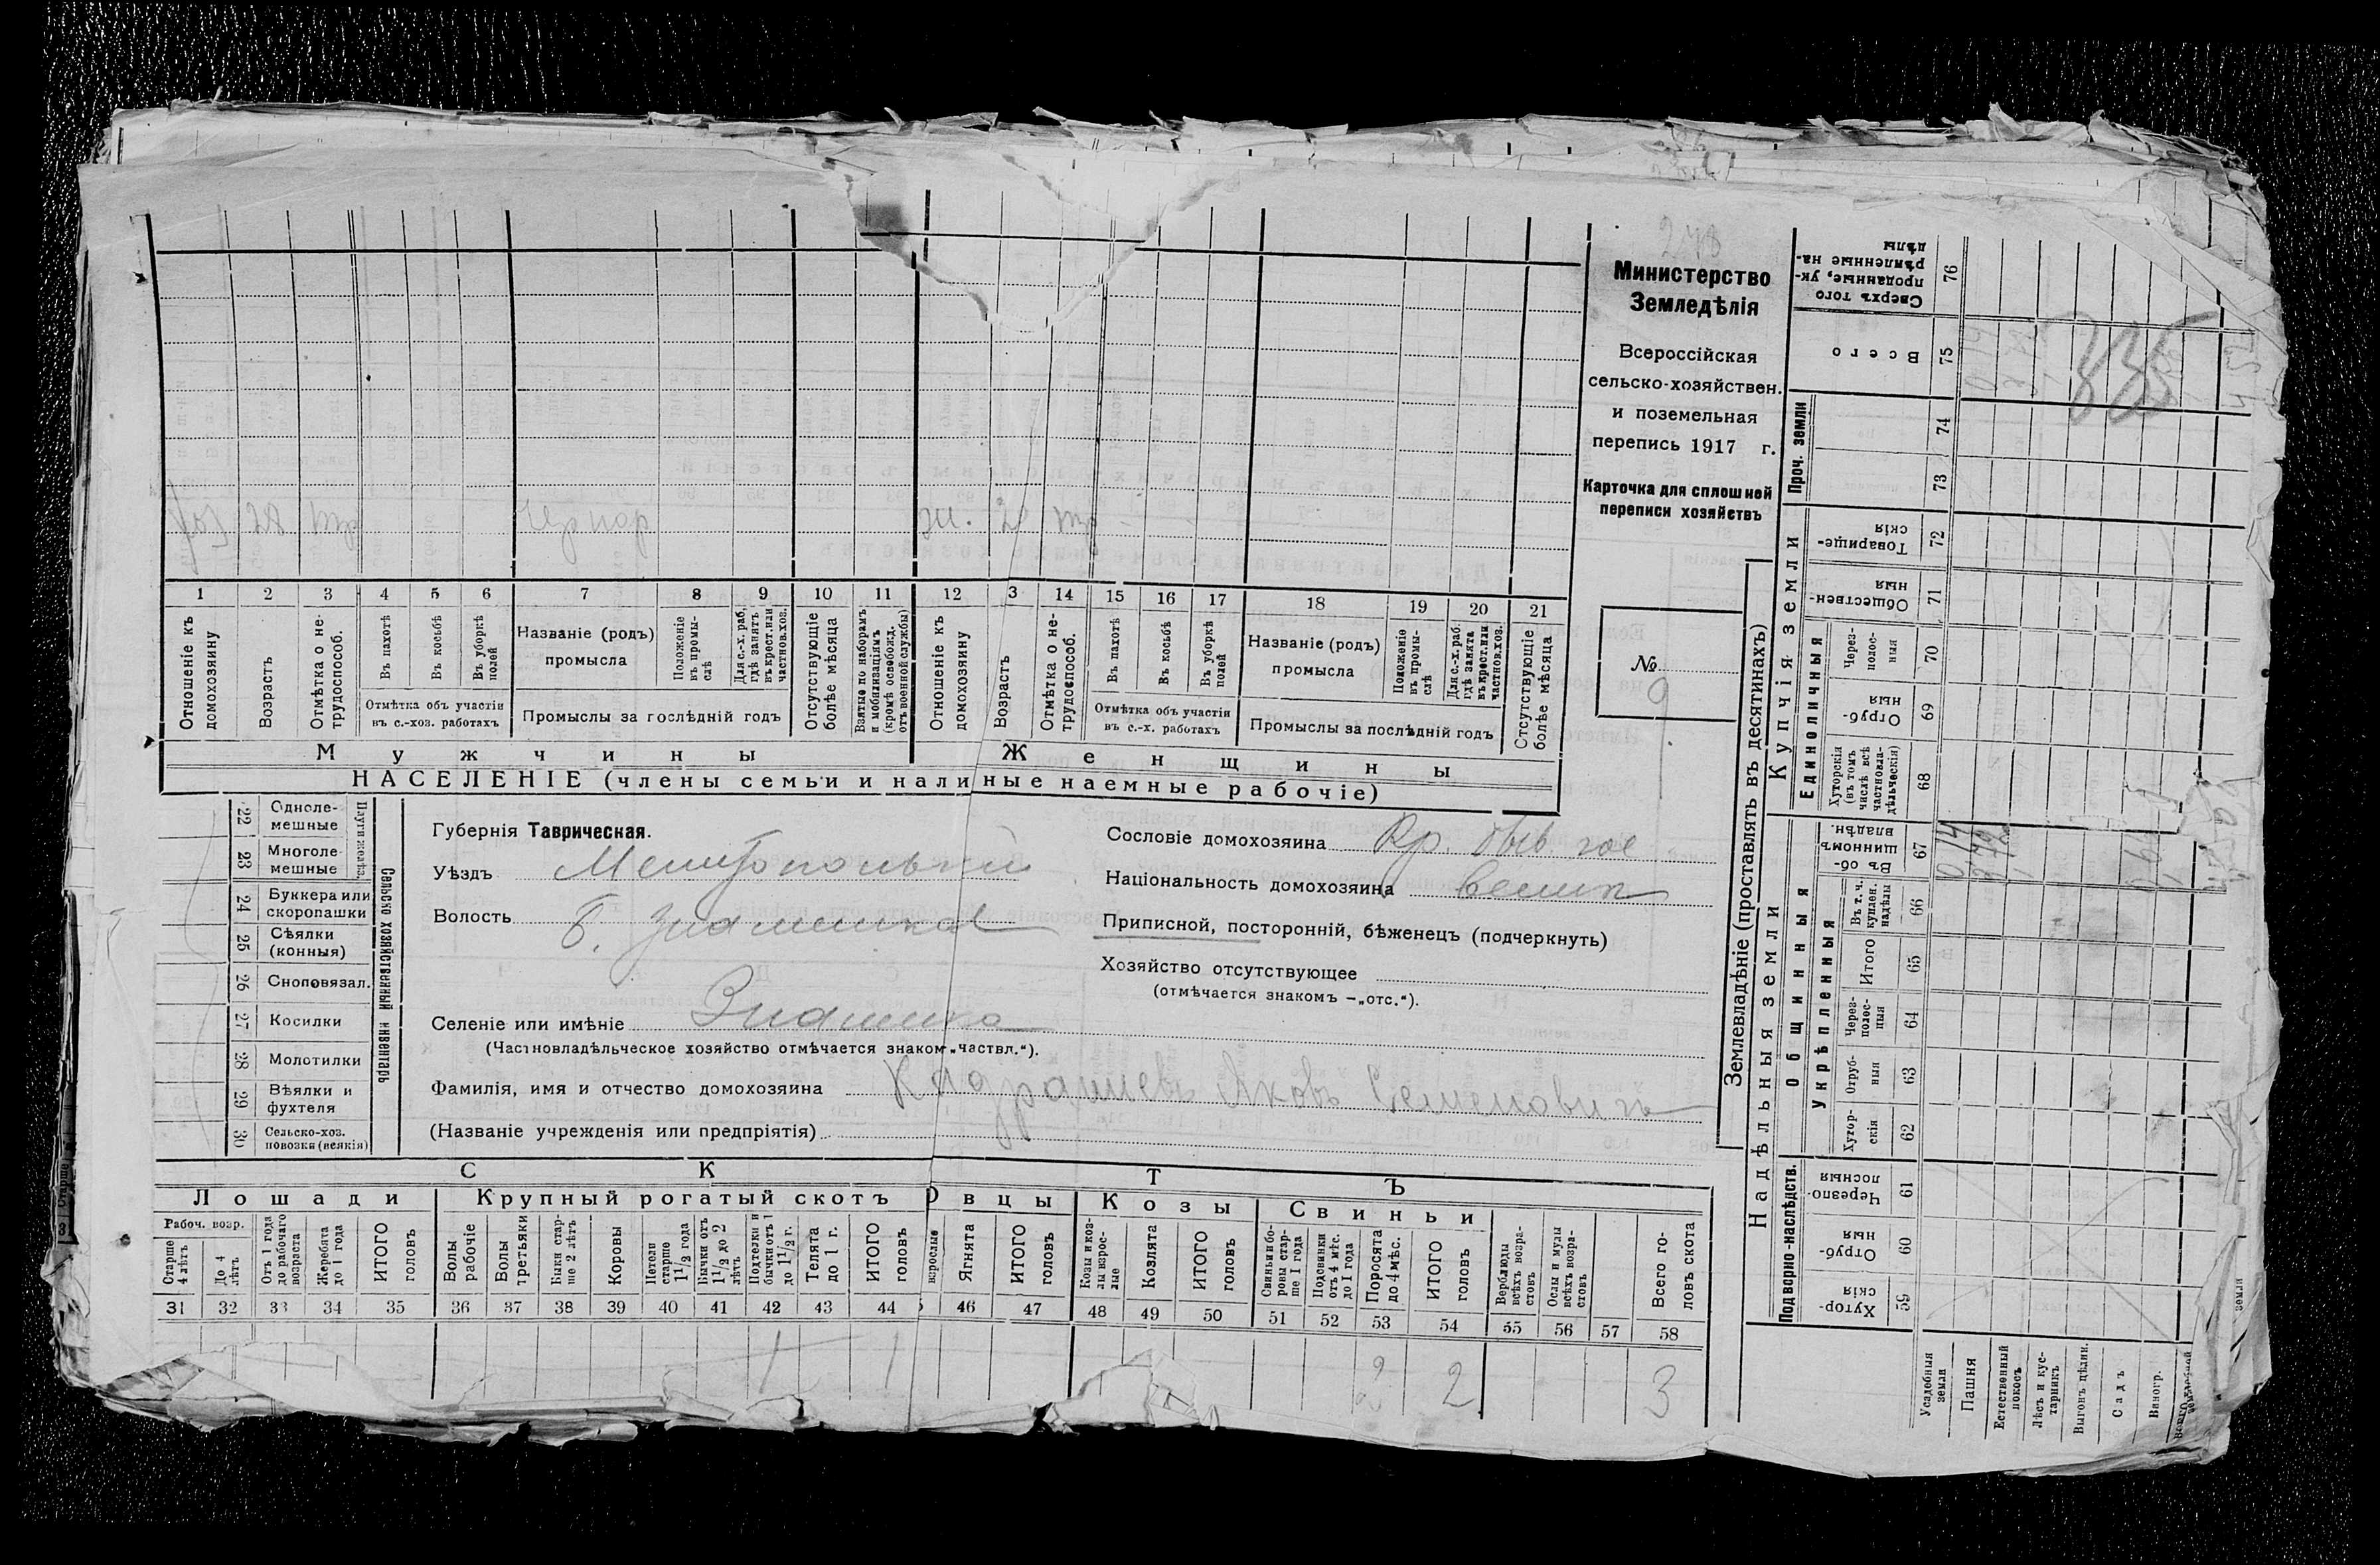 248
Министерство
Земледѣлія
Всероссійская
сельско-хозяйствен.
и поземельная
перепись 1917 г.
Карточка для сплошной
переписи хозяйствъ
№
9
чернор
ж. 2
1 2 3 4 5 6 7 8 9 10 11 12 3 14 15 16 17 18 19 20 21
Отношеніе къ домохозяину
Возрастъ
Отмѣтка о не-трудоспособ.
Въ пахотѣ
Въ косьбѣ
Въ уборкѣ полей
Отмѣтка объ участіи
въ с.-хоз. работахъ
Названіе (родъ)
промысла
Положеніе въ промы-слѣ
Для с.-х. раб. гдѣ занятъ въ крест. или частнов. хоз.
Промыслы за послѣдній годъ
Отсутствующіе болѣе мѣсяца
Взятые по наборамъ и мобилизаціямъ (кромѣ освобожд. отъ военной службы)
Отношеніе къ домохозяину
Возрастъ
Отмѣтка о не-трудоспособ.
Въ пахотѣ
Въ косьбѣ
Въ уборкѣ полей
Отмѣтка объ участіи
въ с.-х. работахъ
Названіе (родъ)
промысла
Положеніе въ промы-слѣ
Для с.-х. раб. гдѣ занята въ крест. или частнов. хоз.
Промыслы за послѣдній годъ
Отсутствующіе болѣе мѣсяца
Мужчины
Женщины
НАСЕЛЕНІЕ (члены семьи и налиные наемные рабочіе)
22 Одноле-мешные
23 Многоле-мешные
Плуги желѣз.
24 Буккера или скоропашки
25 Сѣялки (конныя)
26 Сноповязал.
27 Косилки
28 Молотилки
29 Вѣялки и фухтеля
30 Сельско-хоз. повозки (всякія)
Сельско хозяйственный инвентарь
Губернія Таврическая.
Уѣздъ Мелитопольскій
Волость Б. Знаменская
Селеніе или имѣніе Знаменка
(Частновладѣльческое хозяйство отмѣчается знаком „частвл.“).
Фамилія, имя и отчество домохозяина Кадрашевъ Яковъ Семеновичъ
(Названіе учрежденія или предпріятія)
Сословіе домохозяина Кр. быв. гос
Національность домохозяина велик
Приписной, посторонній, бѣженецъ (подчеркнуть)
Хозяйство отсутствующее
(отмѣчается знакомъ — „отс.“).
СКОТЪ
Лошади
Рабоч. возр.
Старше 4 лѣтъ
До 4 лѣтъ
Отъ 1 года до рабочаго возраста
Жеребята до 1 года
ИТОГО головъ
Крупный рогатый скотъ
Волы рабочіе
Волы третьяки
Быки стар-ше 2 лѣтъ
Коровы
Нетели старше 1 1/2 года
Бычки отъ 1 1/2 до 2 лѣтъ
Подтелки и бычки отъ 1 до 1 1/2 г.
Телята до 1 г.
ИТОГО головъ
Овцы
взрослые
Ягнята
ИТОГО головъ
Козы
Козы и коз-лы взрос-лые
Козлята
ИТОГО головъ
Свиньи
Свиньи и бо-ровы стар-ше 1 года
Подсвинки отъ 4 мѣс. до 1 года
Поросята до 4 мѣс.
ИТОГО головъ
Верблюды всѣхъ возра-стовъ
Ослы и мулы всѣхъ возра-стовъ
Всего го-ловъ скота
31 32 33 34 35 36 37 38 39 40 41 42 43 44 46 47 48 49 50 51 52 53 54 55 56 57 58
1 1 2 2 3
Землевладѣніе (проставлять въ десятинахъ)
Надѣльныя земли
Купчія земли
Проч. земли
Подворно-наслѣдств.
Общинныя
Укрѣпленныя
Единоличныя
Хутор-скія 59
Отруб-ныя 60
Черезпо-лосныя 61
Хутор-скія 62
Отруб-ныя 63
Через-полос-ныя 64
Итого 65
Въ т. ч. куплен. надѣлы 66
Въ об-щинномъ владѣн. 67
Хуторскія (въ томъ числѣ всѣ частновла-дѣльческія) 68
Отруб-ныя 69
Через-полос-ныя 70
Обществен-ныя 71
Товарище-скія 72
73
74
Всего 75
Сверхъ того проданные, ук-рѣпленные на-дѣлы 76
Усадебныя земля
Пашня
Естественный покосъ
Лѣсъ и кус-тарникъ
Выгонъ цѣлин.
Садъ
Виногр.